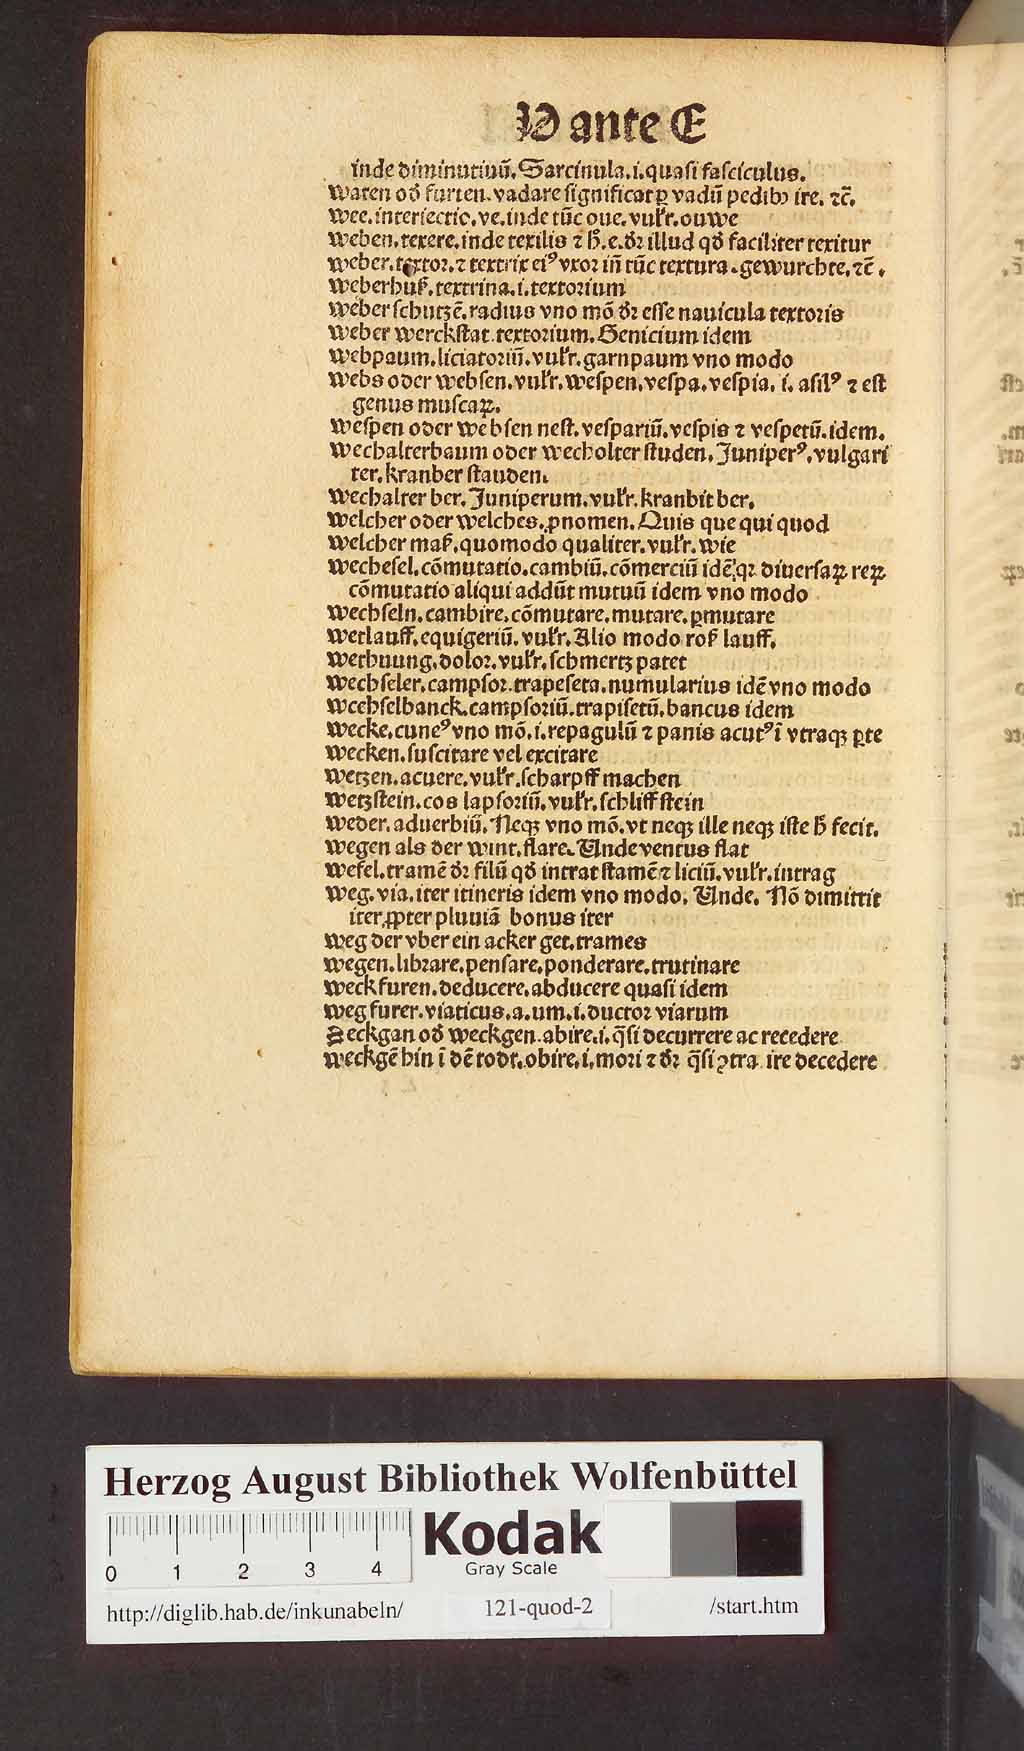 W ante E
inde diminutiuũ. Sarcinula. i. quasi fasciculus.
Waten oď furten. vadare significat ꝑ vadũ pedibꝰ ire. ⁊c̃.
Wee. interiectio. ve. inde tũc oue. vulr̃. ouwe
Weben. texere. inde texilis ⁊ h̃. e. dꝛ illud qď faciliter texitur
Weber. textoꝛ. ⁊ textrix eiꝰ vxoꝛ iñ tũc textura. gewurchte. ⁊c̃.
Weberhuß. textrina. i. textoꝛium
Weber schutzẽ. radius vno mõ dꝛ esse nauicula textoꝛis
Weber werckstat. textoꝛium. Genicium idem
Webpaum. liciatoꝛiũ. vulr̃. garnpaum vno modo
Webs oder websen. vulr̃. wespen. vespa. vespia. i. asilꝰ ⁊ est
genus muscaꝝ.
Wespen oder websen nest. vespariũ. vespis ⁊ vespetũ. idem.
Wechalterbaum oder wecholter studen. Juniperꝰ. vulgari
ter. kranber stauden.
Wechalter ber. Juniperum. vulr̃. kranbit ber.
Welcher oder welches. ꝓnomen. Quis que qui quod
Welcher maß. quomodo qualiter. vulr̃. wie
Wechesel. cõmutatio. cambiũ. cõmerciũ idẽ. qꝛ diuersaꝝ reꝝ
cõmutatio aliqui addũt mutuũ idem vno modo
Wechseln. cambire. cõmutare. mutare. ꝑmutare
Wetlauff. equigeriũ. vulr̃. Alio modo roß lauff.
Wethuung. doloꝛ. vulr̃. schmertz patet
Wechseler. campsoꝛ. trapeseta. numularius idẽ vno modo
Wechselbanck. campsoꝛiũ. trapisetũ. bancus idem
Wecke. cuneꝰ vno mõ. i. repagulũ ⁊ panis acutꝰ ĩ vtraqꝫ ꝑte
Wecken. suscitare vel excitare
Wetzen. acuere. vulr̃. scharpff machen
Wetzstein. cos lapsoꝛiũ. vulr̃. schliffstein
Weder. aduerbiũ. Neqꝫ vno mõ. vt neqꝫ ille neqꝫ iste h̃ fecit.
Wegen als der wint. flare. Unde ventus flat
Wefel. tramẽ dꝛ filũ qď intrat stamẽ ⁊ liciũ. vulr̃. intrag
Weg. via. iter itineris idem vno modo. Unde. Nõ dimittit
iter ꝓpter pluuiã bonus iter
Weg der vber ein acker get. trames
Wegen. libꝛare. pensare. ponderare. trutinare
Weckfuren. deducere. abducere quasi idem
Weg furer. viaticus. a. um. i. ductoꝛ viarum
Zeckgan oď weckgen. abire. i. q̃si decurrere ac recedere
Weckgẽ hin ĩ dẽ todt. obire. i. moꝛi ⁊ dꝛ q̃si ꝯtra ire decedere
Herzog August Bibliothek Wolfenbüttel
0 1 2 3 4
Kodak
Gray Scale
http://diglib.hab.de/inkunabeln/ 121-quod-2 /start.htm